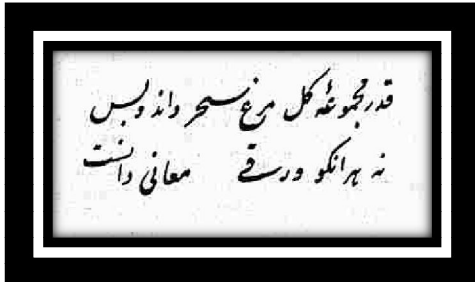 قدر مجموعهٔ گل مرغ سحر داند و بس
نه هرانکو ورقے معانی دانست